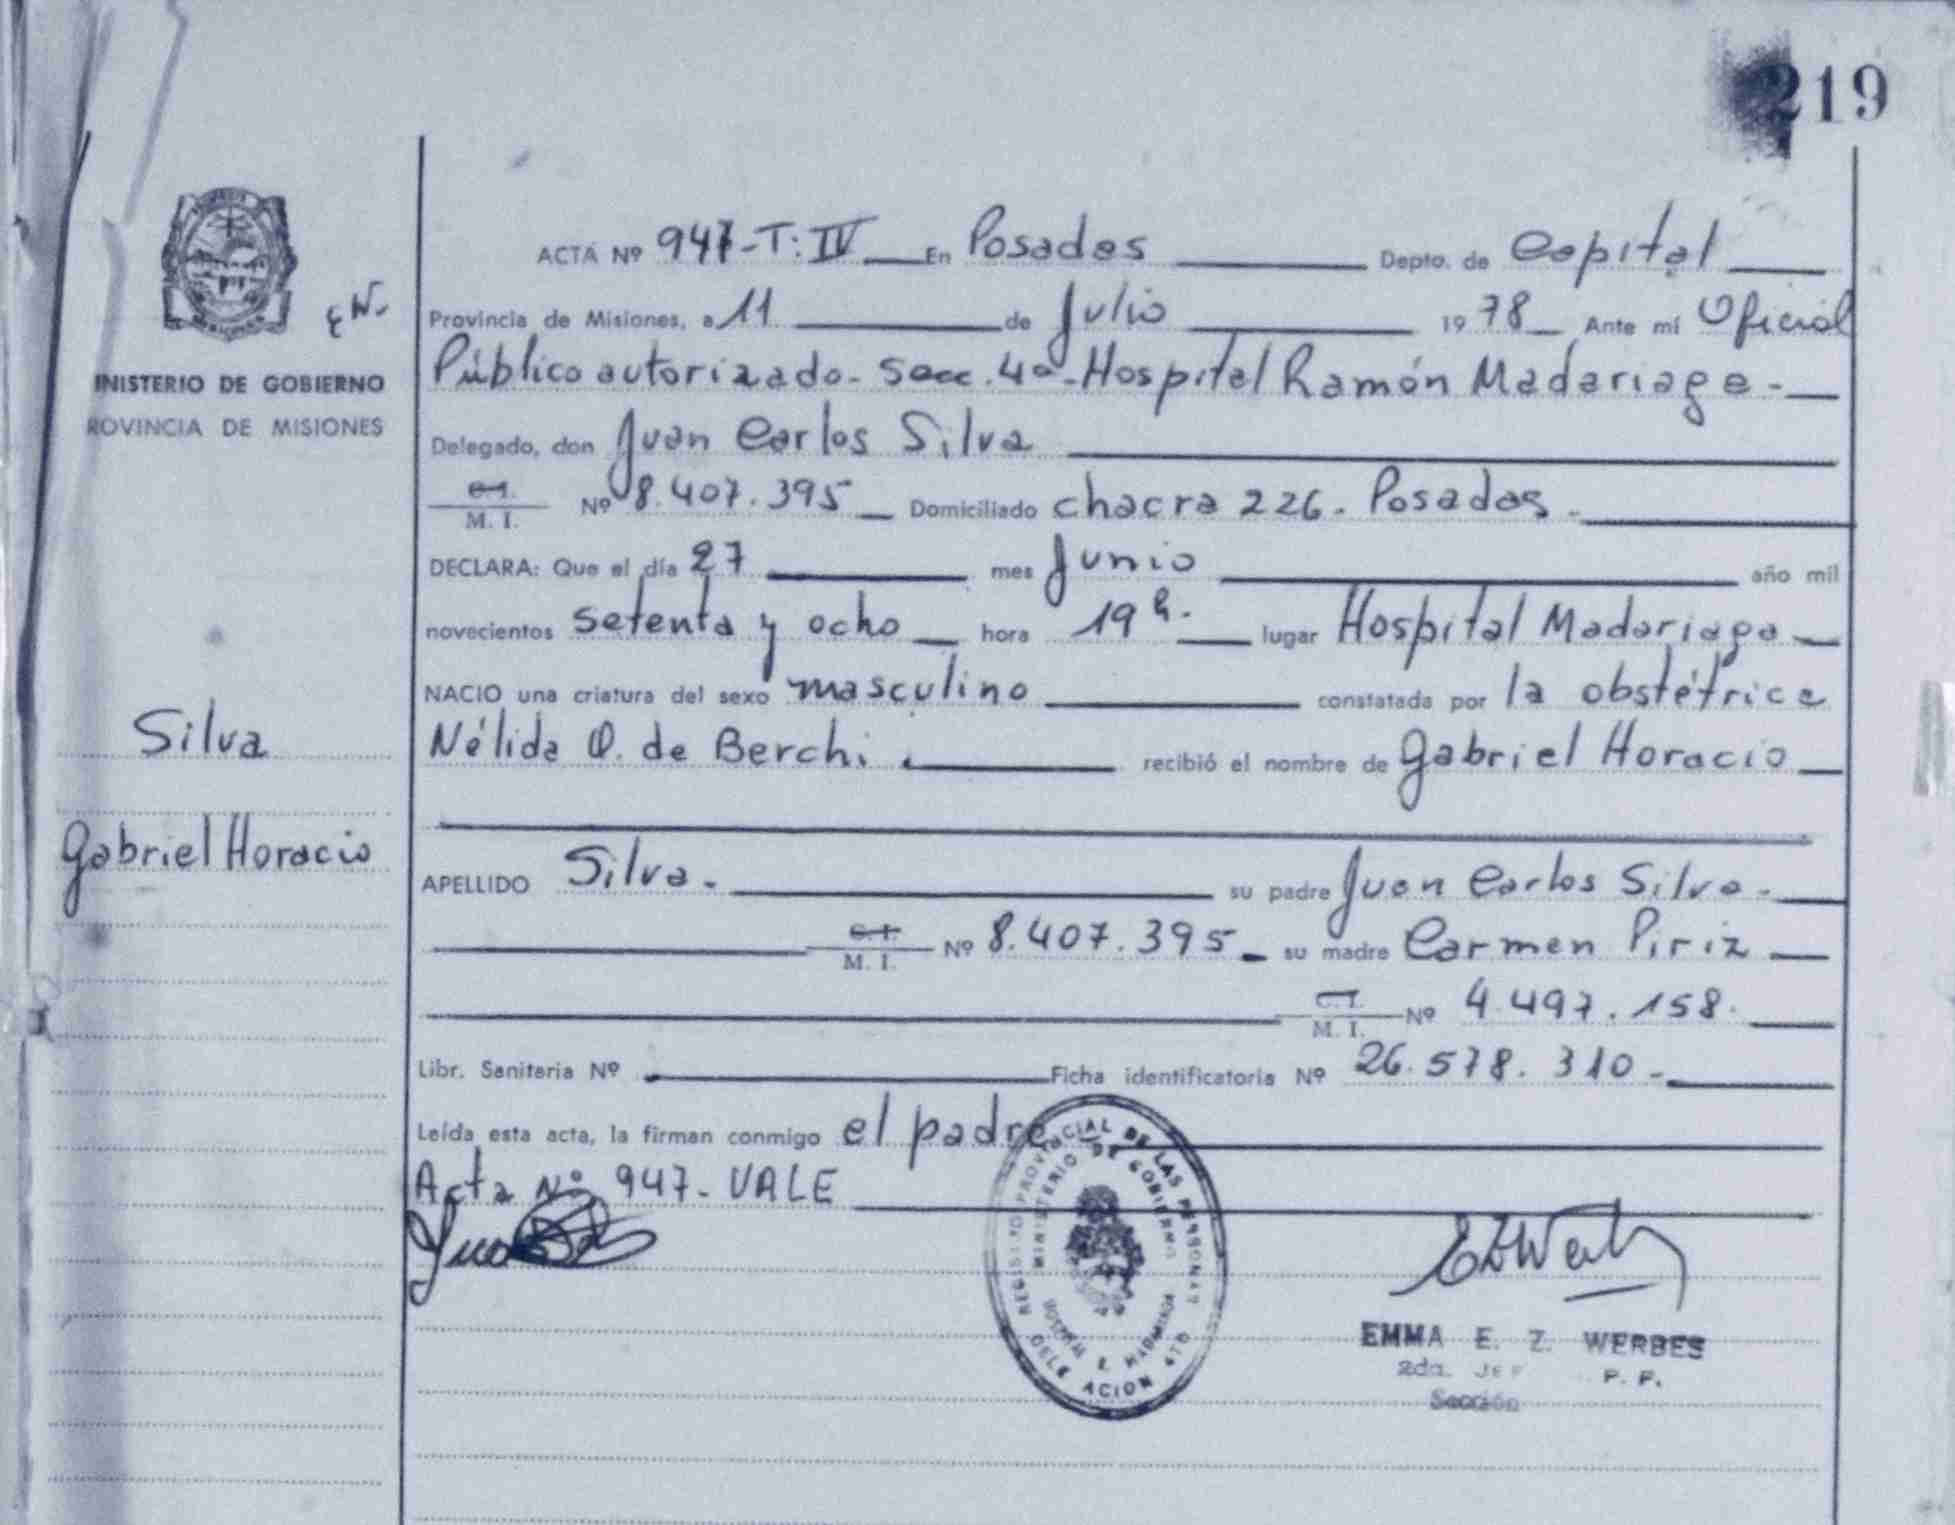 219
ACTA Nº 947-T: IV En Posadas Depto. de Capital
EW-
Provincia de Misiones, a 11 de Julio 1978 Ante mí Oficial
Público autorizado - Secc. 4ª - Hospital Ramón Madariaga -
INISTERIO DE GOBIERNO
ROVINCIA DE MISIONES
Delegado, don Juan Carlos Silva
C.I.
M. I. Nº 8.407.395 Domiciliado chacra 226. Posadas.
DECLARA: Que el día 27 mes Junio año mil
novecientos setenta y ocho hora 19 h. lugar Hospital Madariaga
NACIO una criatura del sexo masculino constatada por la obstétrica
Silva
Nélida O. de Berchi. recibió el nombre de Gabriel Horacio
Gabriel Horacio
APELLIDO Silva. su padre Juan Carlos Silva.
C.I.
M. I. Nº 8.407.395 su madre Carmen Piriz
C.I.
M. I. Nº 4.497.158.
Libr. Sanitaria Nº Ficha identificatoria Nº 26.578.310.
Leída esta acta, la firman conmigo el padre
Acta Nº 947. VALE
REGISTRO PROVINCIAL DE LAS PERSONAS
MINISTERIO DE GOBIERNO
DELE ACION 4TO
EMMA E. Z. WERBES
2da. P. P.
Sección